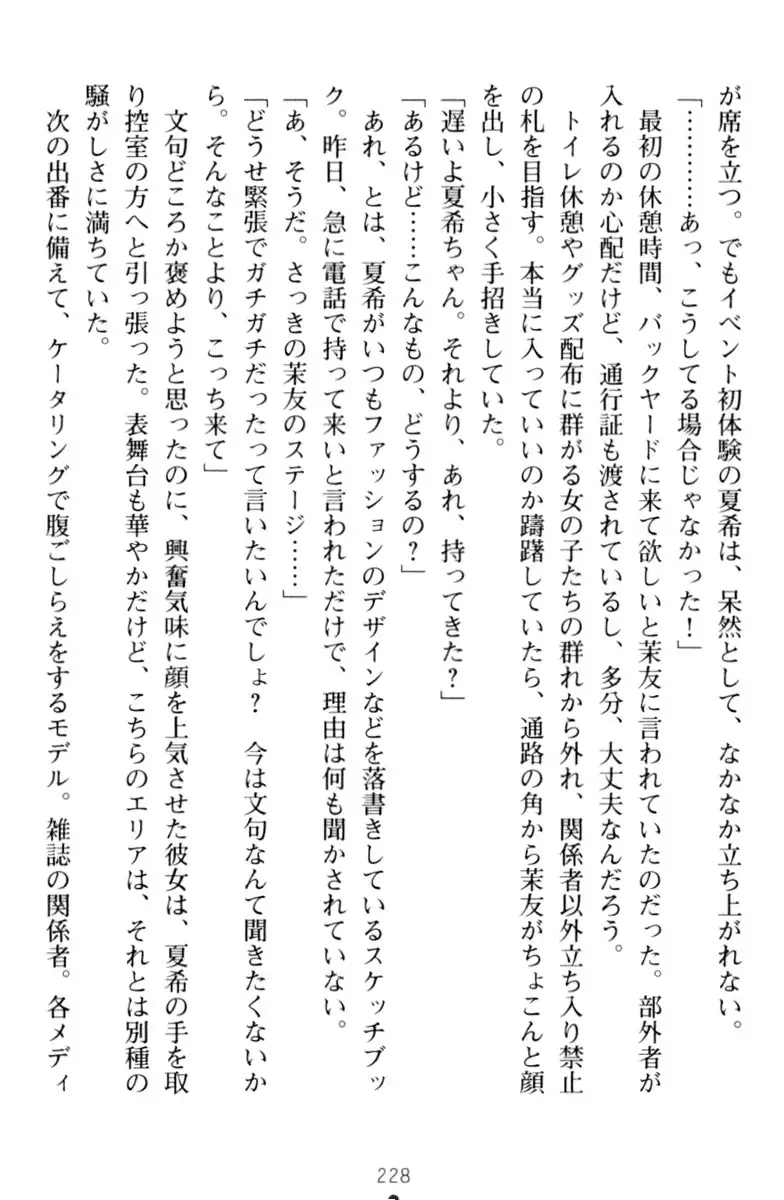 が席を立つ。でもイベント初体験の夏希は、呆然として、なかなか立ち上がれない。
「…………あっ、こうしてる場合じゃなかった！」
　最初の休憩時間、バックヤードに来て欲しいと茉友に言われていたのだった。部外者が
入れるのか心配だけど、通行証も渡されているし、多分、大丈夫なんだろう。
　トイレ休憩やグッズ配布に群がる女の子たちの群れから外れ、関係者以外立ち入り禁止
の札を目指す。本当に入っていいのか躊躇していたら、通路の角から茉友がちょこんと顔
を出し、小さく手招きしていた。
「遅いよ夏希ちゃん。それより、あれ、持ってきた？」
「あるけど……こんなもの、どうするの？」
　あれ、とは、夏希がいつもファッションのデザインなどを落書きしているスケッチブッ
ク。昨日、急に電話で持って来いと言われただけで、理由は何も聞かされていない。
「あ、そうだ。さっきの茉友のステージ……」
「どうせ緊張でガチガチだったって言いたいんでしょ？　今は文句なんて聞きたくないか
ら。そんなことより、こっち来て」
　文句どころか褒めようと思ったのに、興奮気味に顔を上気させた彼女は、夏希の手を取
り控室の方へと引っ張った。表舞台も華やかだけど、こちらのエリアは、それとは別種の
騒がしさに満ちていた。
　次の出番に備えて、ケータリングで腹ごしらえをするモデル。雑誌の関係者。各メディ
228